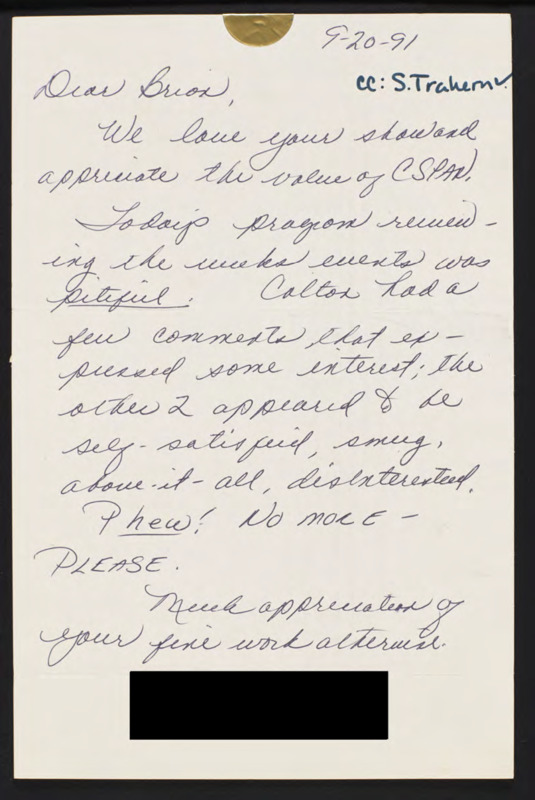 9-20-91
cc: S. Trahern✓
Dear Brian,
We love your show and
appreciate the value of CSPAN.
Today's program review-
ing the weeks events was
pitiful. Colton had a
few comments that ex-
pressed some interest; the
other 2 appeared to be
self-satisfied, smug,
above-it-all, disinterested.
Phew! No MORE –
PLEASE.
Much appreciation of
your fine work otherwise.